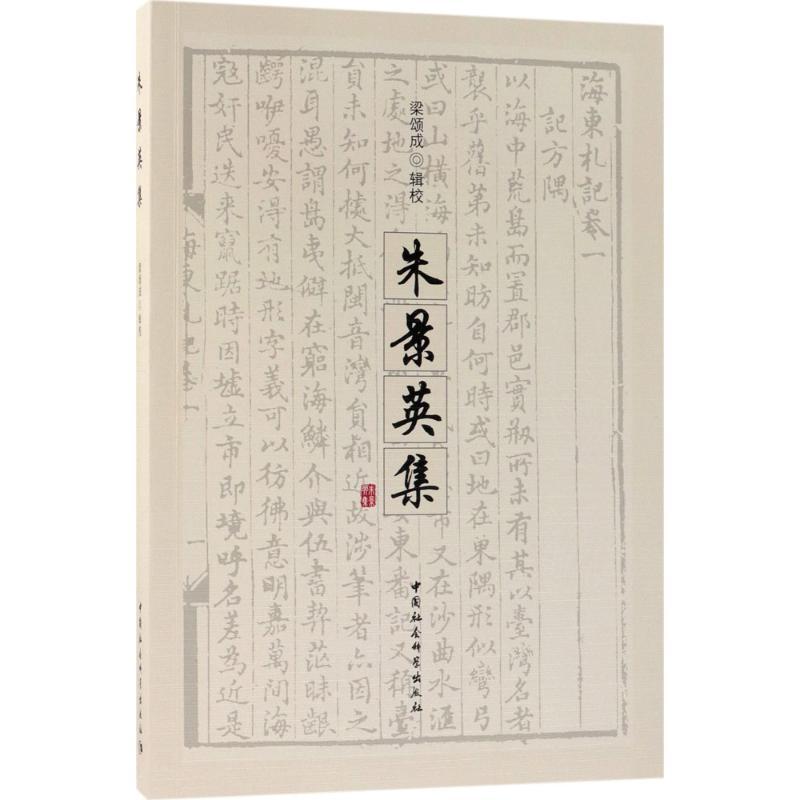 朱景英集
梁颂成◎辑校
中国社会科学出版社
梁颂成◎辑校
朱景英集
中国社会科学出版社
海東札記卷一
記方隅
以海中荒島而置郡邑實剏所未有其以臺灣名者
襲乎舊第未知昉自何時或曰地在東隅形似彎弓
或曰山橫海
市又在沙曲水滙
之處地之得
安東番記又稱臺
員未知何據大抵閩音灣員相近故涉筆者六因之
混耳愚謂島夷僻在窮海鱗介與伍書契茫昧齦
齶咿嚘安得有地形字義可以彷彿意明嘉萬間海
寇奸民迭來竄踞時因墟立市即境呼名差為近是
海東札記卷一
一